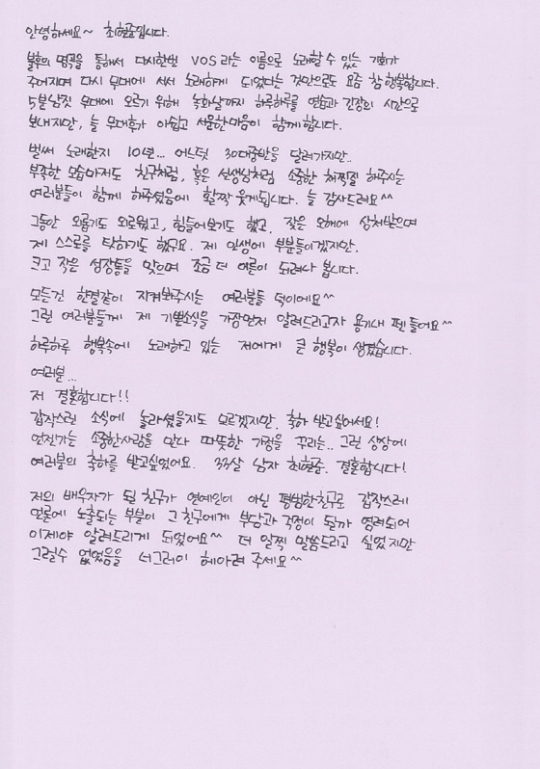 안녕하세요~ 최현준입니다.
불후의 명곡을 통해서 다시한번 VOS라는 이름으로 노래할 수 있는 기회가
주어지며 다시 무대에 서서 노래하게 되었다는 것만으로도 요즘 참 행복합니다.
5분남짓 무대에 오르기 위해 녹화날까지 하루하루를 연습과 긴장의 시간으로
보내지만, 늘 무대후가 아쉽고 서운한마음이 함께 합니다.
벌써 노래한지 10년... 어느덧 30대중반을 달려가지만..
부족한 모습마저도 친구처럼, 혹은 선생님처럼 소중한 채찍질 해주시는
여러분들이 함께 해주셨음에 활짝 웃게됩니다. 늘 감사드려요^^
그동안 외롭기도 외로웠고, 힘들어보기도 했고, 잦은 오해에 상처받으며
제 스스로를 탓하기도 했구요. 제 인생에 부분들이겠지만.
크고 작은 성장통을 맞으며 조금 더 어른이 되려나 봅니다.
모든건 한결같이 지켜봐주시는 여러분들 덕이에요^^
그런 여러분들께 제 기쁜소식을 가장먼저 알려드리고자 용기내 펜 들어요^^
하루하루 행복속에 노래하고 있는 저에게 큰 행복이 생겼습니다.
여러분...
저 결혼합니다!!
갑작스런 소식에 놀라셨을지도 모르겠지만, 축하 받고싶어요!
언젠가는 소중한사람을 만나 따뜻한 가정을 꾸리는.. 그런 상상에
여러분의 축하를 받고싶었어요. 33살 남자 최현준. 결혼합니다!
저의 배우자가 될 친구가 연예인이 아닌 평범한친구로 갑작스레
언론에 노출되는 부분이 그 친구에게 부담과 걱정이 될까 염려되어
이제야 알려드리게 되었어요^^ 더 일찍 말씀드리고 싶었지만
그럴수 없었음을 너그러이 헤아려 주세요^^